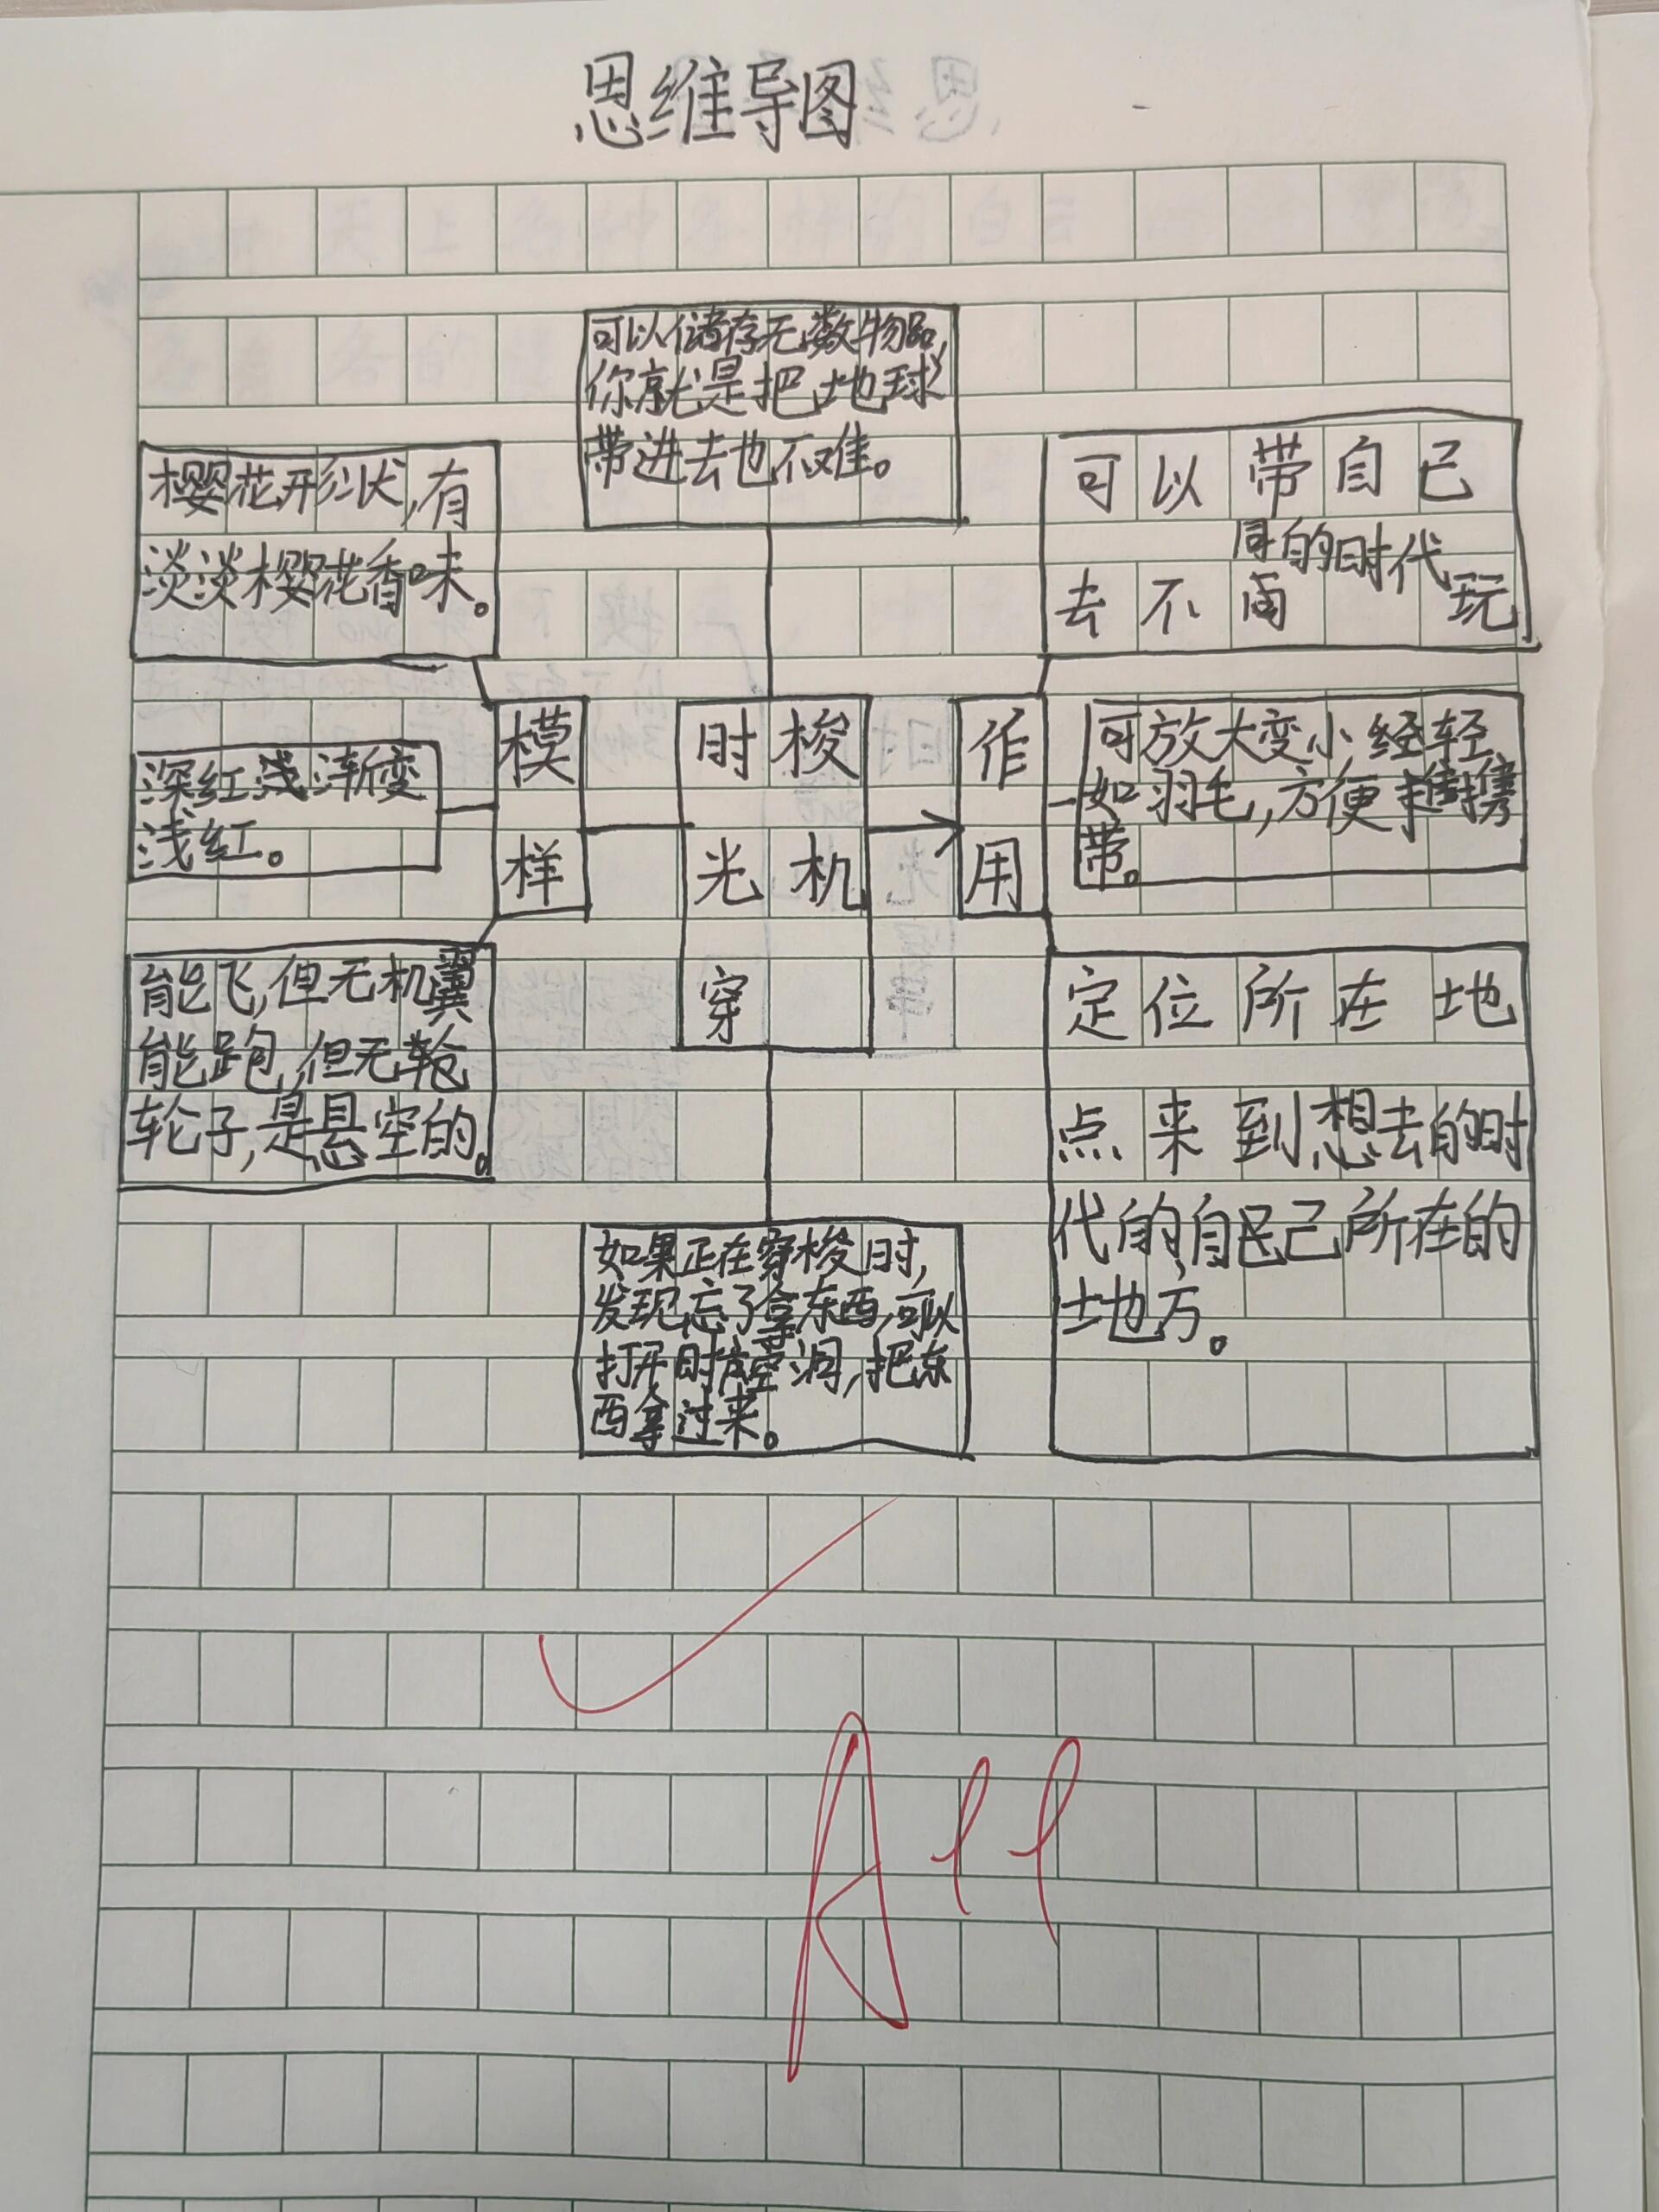 思维导图
可以储存无数物品,
你就是把地球
带进去也不难。
樱花形状,有
淡淡樱花香味。
可以带自己
同的时代
去不 玩
模
样
时梭
光机
穿
作
用
深红浅渐变
浅红。
可放大变小经轻
如羽毛,方便携
带。
能飞,但无机翼
能跑,但无轮
轮子,是悬空的。
定位所在地
点来到想去的时
代的自己所在的
地方。
如果正在穿梭时,
发现忘了拿东西,可以
打开时空洞,把东
西拿过来。
A11